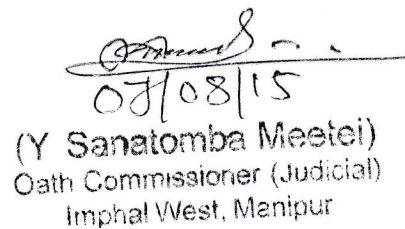 07/08/15
(Y Sanatomba Meetei)
Oath Commissioner (Judicial)
Imphal West, Manipur